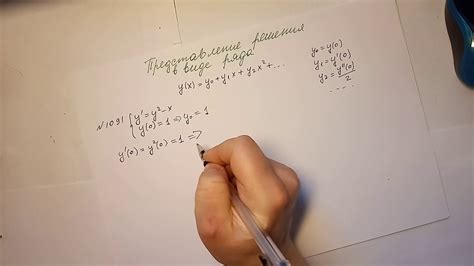 Представление решения
в виде ряда
y(x) = y₀ + y₁x + y₂x² + ...
y₀ = y(0)
y₁ = y'(0)
y₂ = y''(0)/2
....
N 1091 { y' = y² - x
y(0) = 1 ⇒ y₀ = 1
y'(0) = y²(0) = 1 ⇒